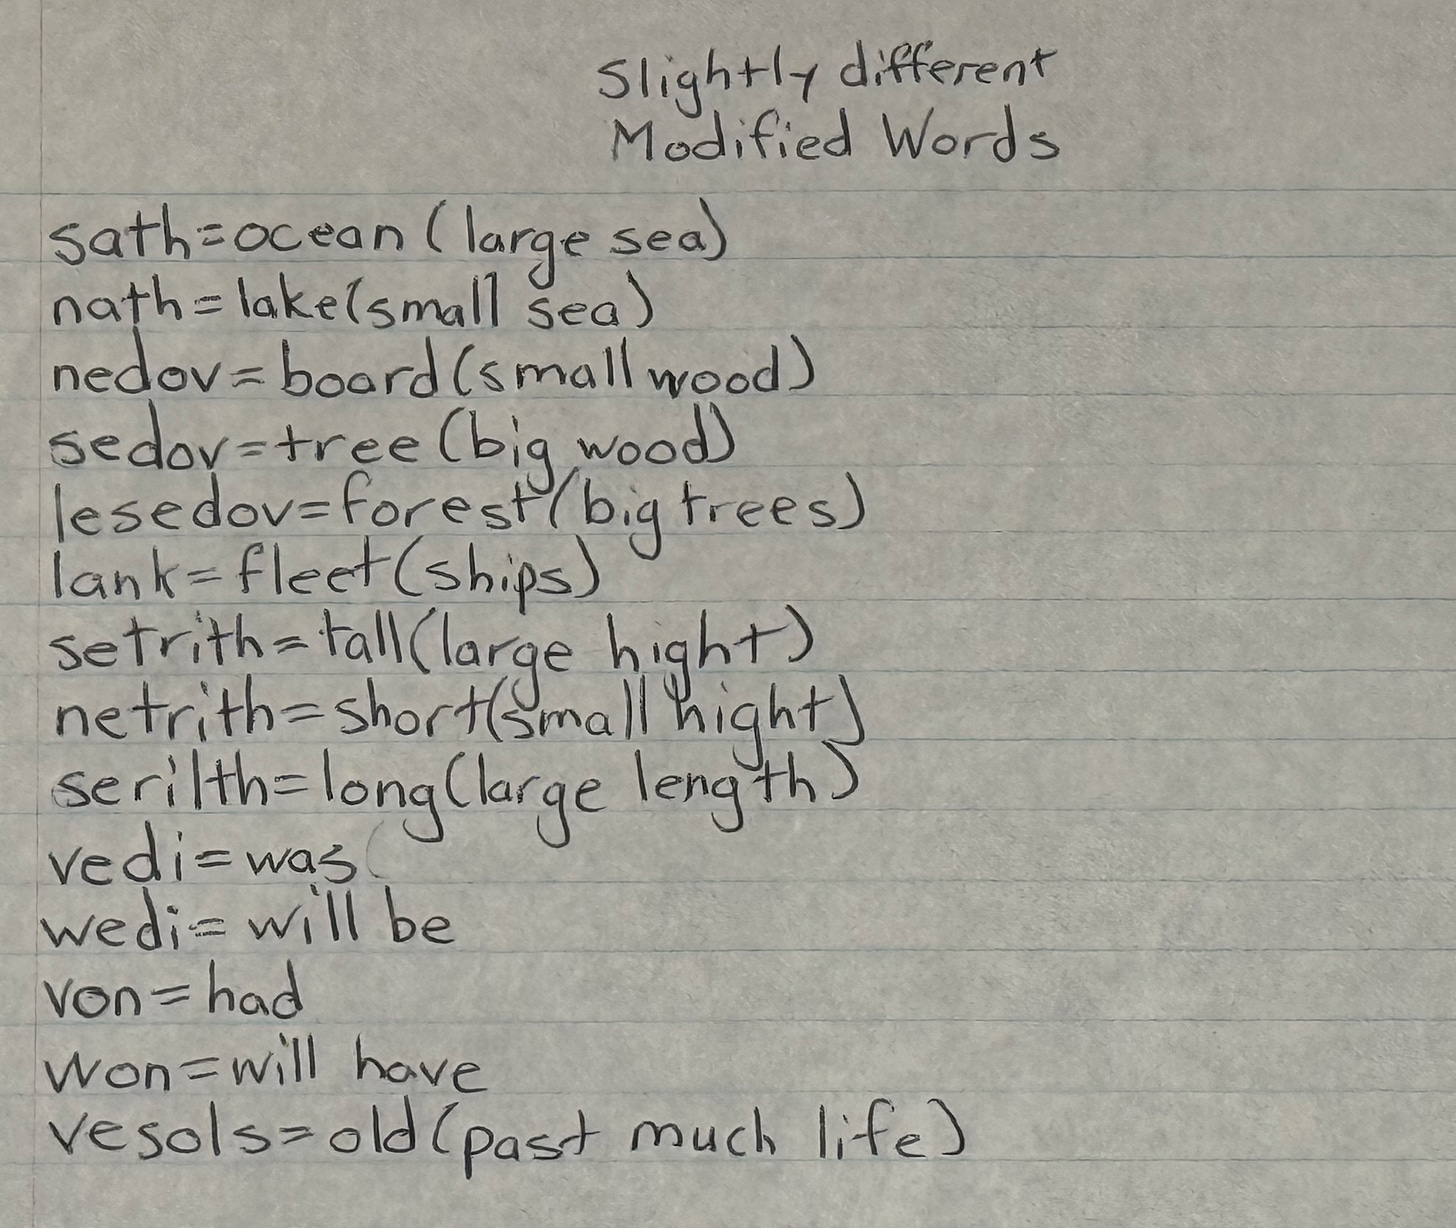 Slightly different
Modified Words
sath=ocean (large sea)
nath=lake(small sea)
nedov=board(small wood)
sedov=tree(big wood)
lesedov=forest(big trees)
lank=fleet(ships)
setrith=tall(large hight)
netrith=short(small hight)
serilth=long(large length)
vedi=was
wedi=will be
von=had
won=will have
vesols=old(past much life)